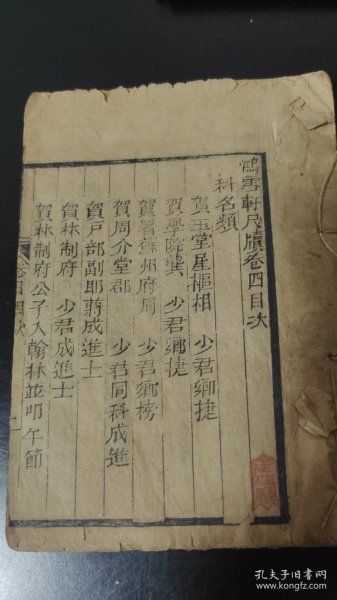 鴻雪軒尺牘卷四目次
科名類
賀王堂星樞相 少君鄉捷
賀學院龔 少君鄉捷
賀署蘇州府周 少君鄉榜
賀周介堂郡 少君同科成進
賀戶部副郎蔣成進士
賀林制府 少君成進士
賀林制府公子入翰林並叩午節
卷四目次
孔夫子旧书网
kongfz.com